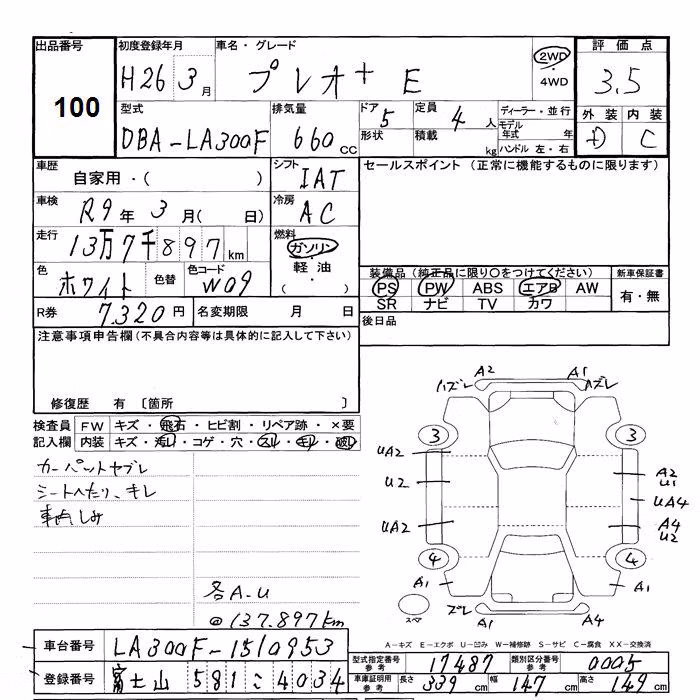 出品番号 初度登録年月 車名・グレード 評価点
100 H26 3月 プレオ+ E 2WD ・ 4WD 3.5
型式 排気量 ドア 5 定員 4人 ディーラー・並行 外装 内装
DBA-LA300F 660cc 形状 積載 kg モデル年式 年 ハンドル 左・右 D C
車歴 シフト セールスポイント (正常に機能するものに限ります)
自家用・( ) IAT
車検 冷房
R9年 3月( 日) AC
走行 燃料
13万7千897km ガソリン
色 色替 色コード 軽油
ホワイト W09 ・( )
装備品 (純正品に限り○をつけてください) 新車保証書
PS PW ABS エアB AW 有・無
SR ナビ TV カワ
R券 7,320円 名変期限 月 日 後日品
注意事項申告欄(不具合内容等は具体的に記入して下さい)
修復歴 有 〔箇所 〕
検査員 FW キズ・飛石・ヒビ割・リペア跡・×要
記入欄 内装 キズ・汚れ・コゲ・穴・スレ・キレ・破れ
カーパットヤブレ
シートヘたり、キレ
車内しみ
各A-U
@137.897km
A2 A1
ハズレ ハズレ
3 3
UA2 A2
U1
U2 UA4
UA2 A4
U2
4 4
A1 A1
スペア ズレ
A1 A4
A-キズ E-エクボ U-凹み W-補修跡 S-サビ C-腐食 XX-交換済
車台番号 LA300F-1510953
型式指定番号 参考 17487 類別区分番号 参考 0005
登録番号 富士山 581 こ 4034
車庫証明用 参考 長さ 339cm 幅 147cm 高さ 149cm